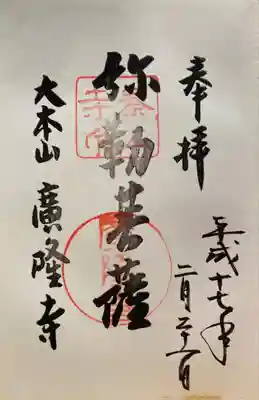 奉拝
平成十七年
二月二十一日
弥勒菩薩
大本山 廣隆寺